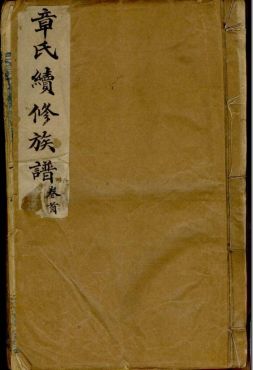 章氏續修族譜
卷首